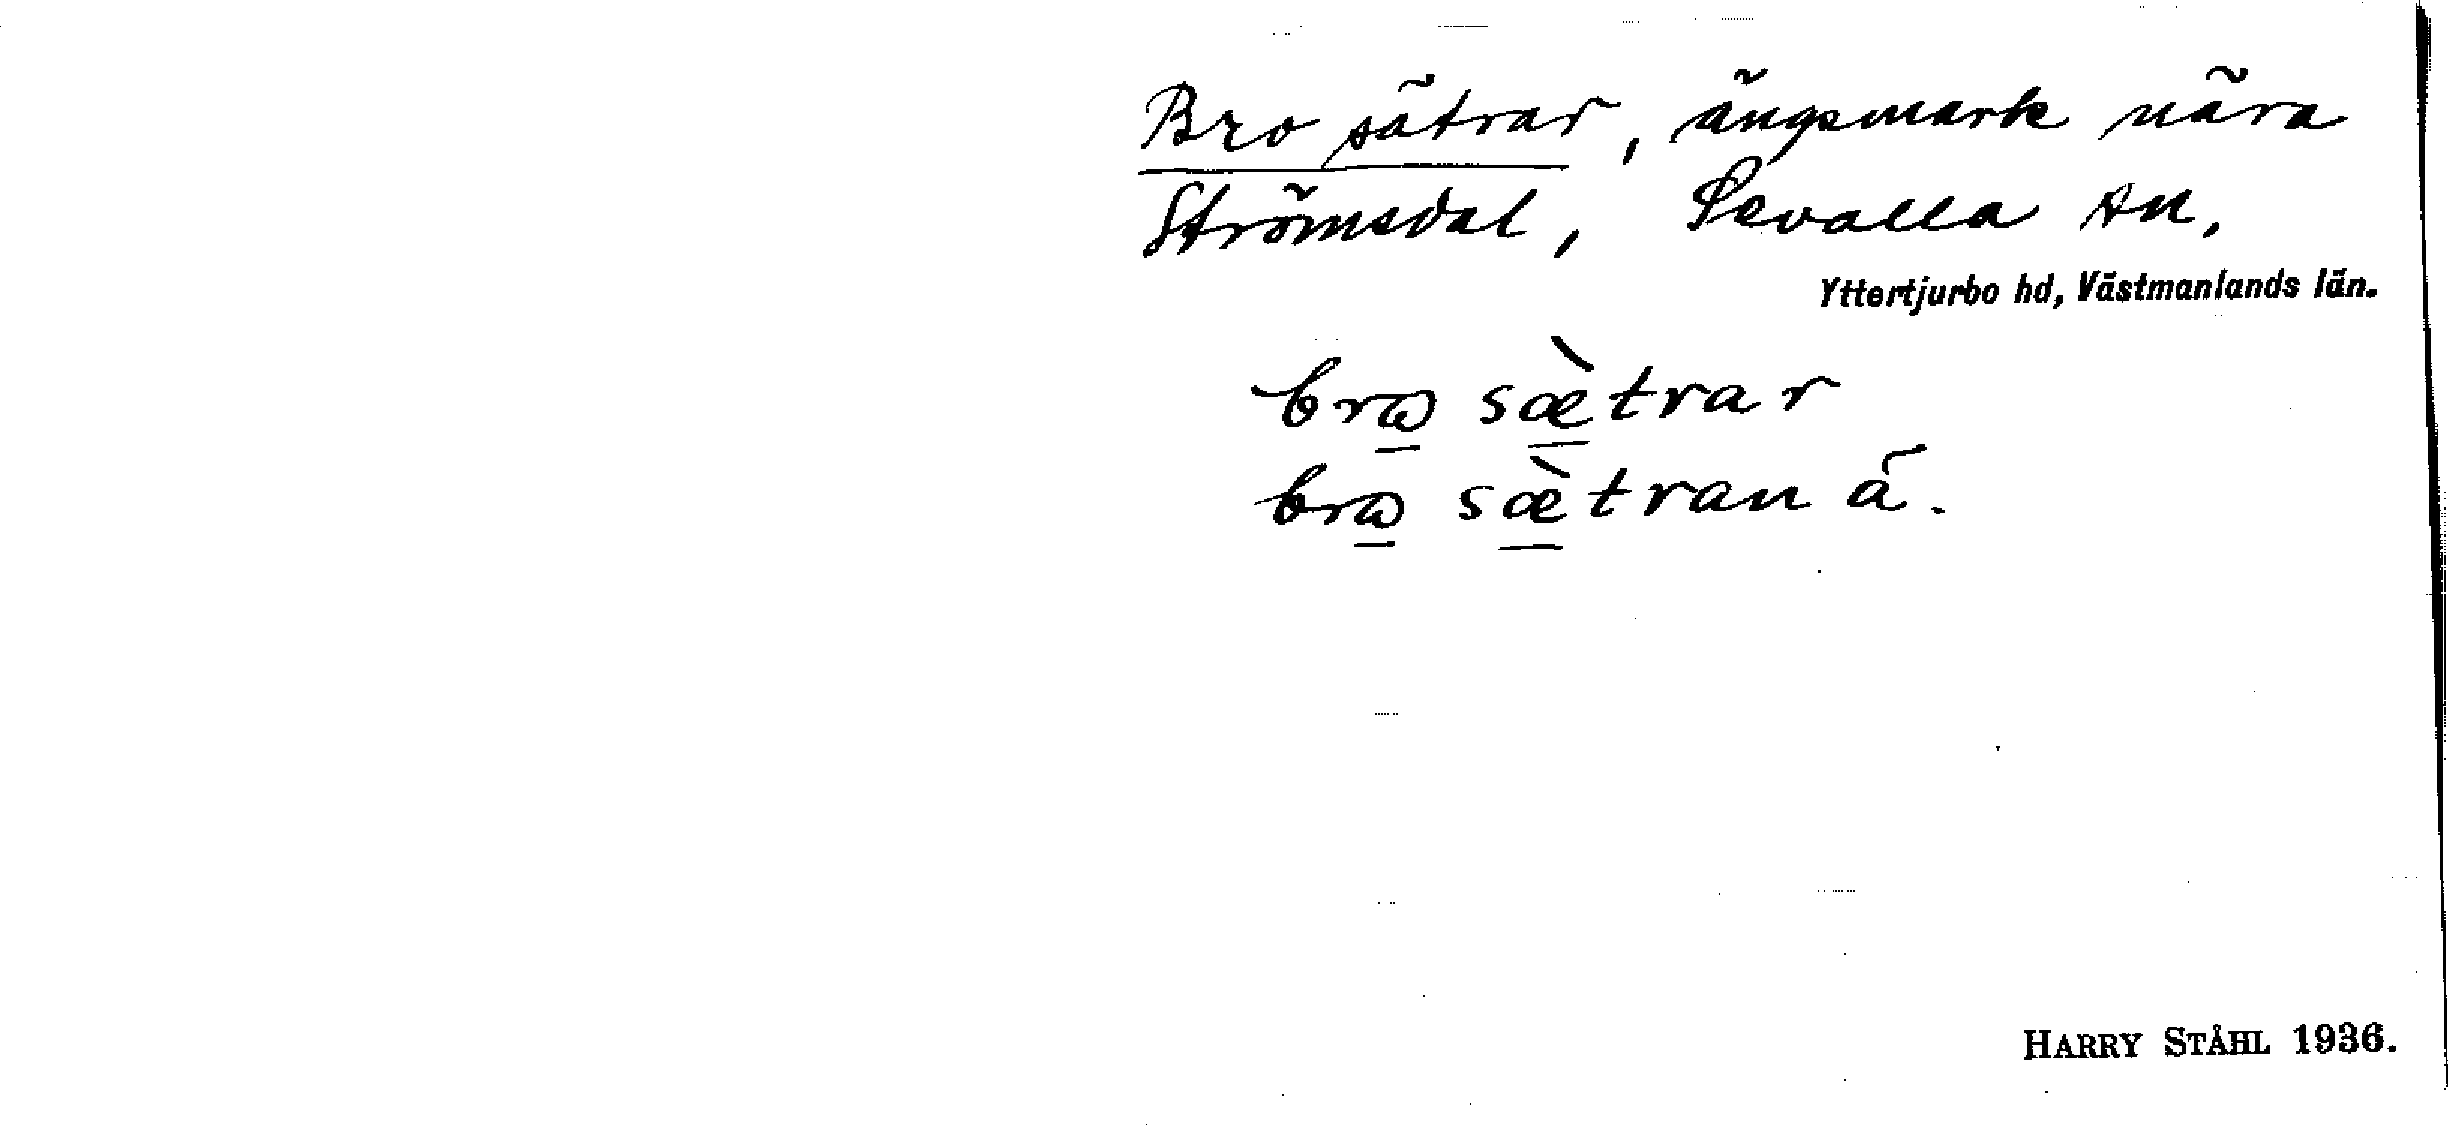 Bro sätrar, ängsmark nära
Strömsdal, Sevalla sn,
Yttertjurbo hd, Västmanlands län.
brω̱ sæ̱̀trar
brω̱ sæ̱̀tran á.
HARRY STÅHL 1936.